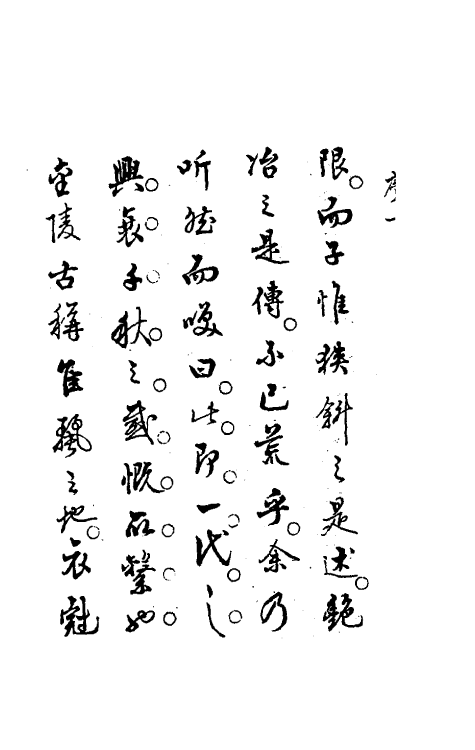 序一
限。而子惟狹斜之是述。艷
冶之是傳。不已荒乎。余乃
听然而咲曰。此即。一代。之。
興。衰。千。秋。之。感。慨。所。繫。也。
金陵古稱佳麗之地。衣冠